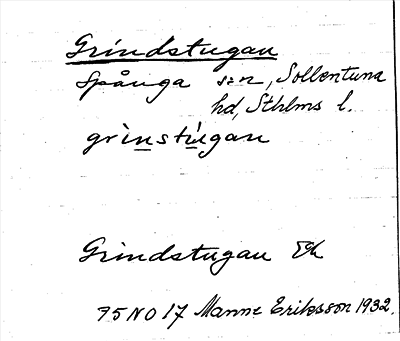 Grindstugan
Spånga s:n, Sollentuna
hd, Sthlms l.
grinstúgan
Grindstugan Ek
75 NO 17 Manne Eriksson 1932.